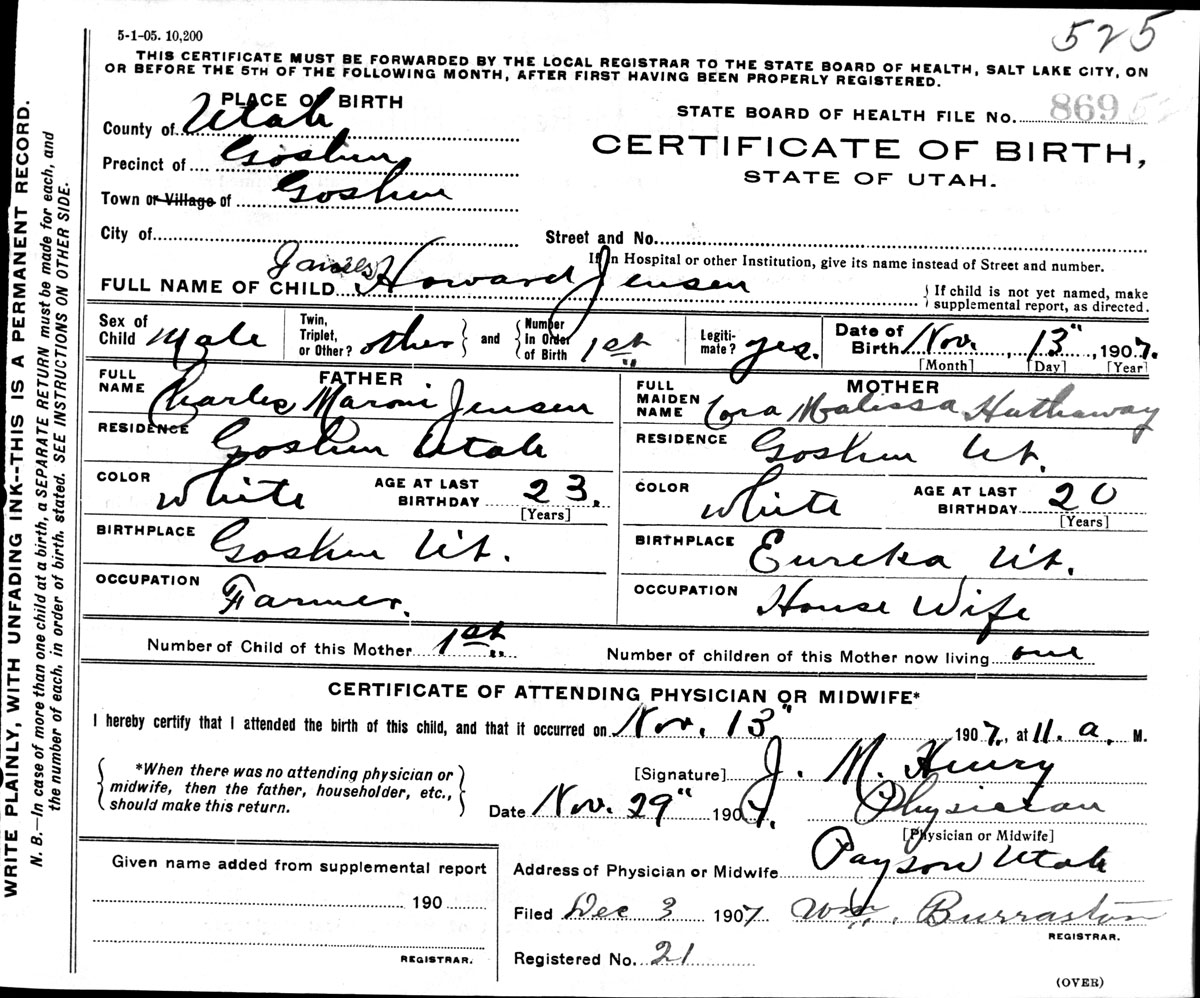 5-1-05. 10,200
525
THIS CERTIFICATE MUST BE FORWARDED BY THE LOCAL REGISTRAR TO THE STATE BOARD OF HEALTH, SALT LAKE CITY, ON
OR BEFORE THE 5TH OF THE FOLLOWING MONTH, AFTER FIRST HAVING BEEN PROPERLY REGISTERED.
PLACE OF BIRTH
County of Utah
Precinct of Goshen
Town or Village of Goshen
City of
STATE BOARD OF HEALTH FILE No. 869
CERTIFICATE OF BIRTH,
STATE OF UTAH.
Street and No.
If in Hospital or other Institution, give its name instead of Street and number.
FULL NAME OF CHILD James Howard Jensen
If child is not yet named, make
supplemental report, as directed.
Sex of Child Male
Twin, Triplet, or Other? other and Number In Order of Birth 1st
Legiti-mate? yes.
Date of Birth Nov. 13", 1907.
[Month] [Day] [Year]
FATHER
FULL NAME Charles Maroni Jensen
RESIDENCE Goshen Utah
COLOR White AGE AT LAST BIRTHDAY 23.
[Years]
BIRTHPLACE Goshen Ut.
OCCUPATION Farmer.
MOTHER
FULL MAIDEN NAME Cora Malissa Hathaway
RESIDENCE Goshen Ut.
COLOR White AGE AT LAST BIRTHDAY 20
[Years]
BIRTHPLACE Eureka, Ut.
OCCUPATION House Wife
Number of Child of this Mother 1st
Number of children of this Mother now living one
CERTIFICATE OF ATTENDING PHYSICIAN OR MIDWIFE*
I hereby certify that I attended the birth of this child, and that it occurred on Nov. 13" 1907, at 11. a. M.
*When there was no attending physician or
midwife, then the father, householder, etc.,
should make this return.
[Signature] J. M. Henry
Date Nov. 29" 1907. Physician
[Physician or Midwife]
Address of Physician or Midwife Payson Utah
Filed Dec 3 1907 Wm. Burraston
REGISTRAR.
Registered No. 21
Given name added from supplemental report
190
REGISTRAR.
(OVER)
WRITE PLAINLY, WITH UNFADING INK--THIS IS A PERMANENT RECORD.
N. B.—In case of more than one child at a birth, a SEPARATE RETURN must be made for each, and
the number of each, in order of birth, stated. SEE INSTRUCTIONS ON OTHER SIDE.